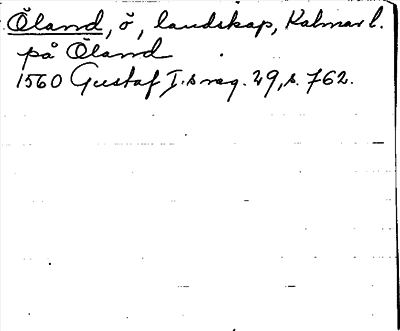 Öland, ö, landskap, Kalmar l.
på Öland
1560 Gustaf I:s reg. 29, s. 762.